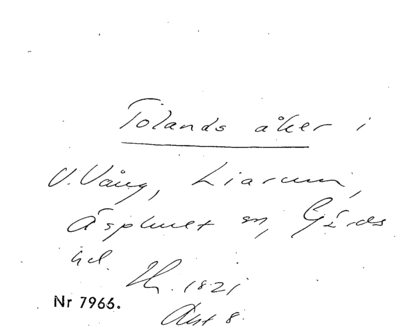 Tolands åker i
V. Vång, Liarum,
Äsphult sn, Gärds
hd. Th. 1821
Akt 8.
Nr 7966.